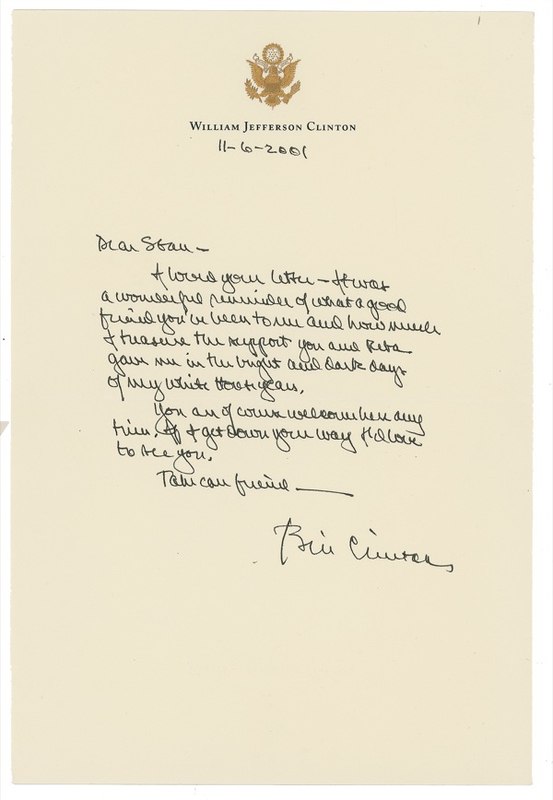 WILLIAM JEFFERSON CLINTON
11-6-2001
Dear Stan –
I loved your letter – It was
a wonderful reminder of what a good
friend you've been to me and how much
I treasure the support you and Rita
gave me in the bright and dark days
of my White House years.
You are of course welcome here any
time. If I get down your way I'd love
to see you.
Take care friend —
Bill Clinton